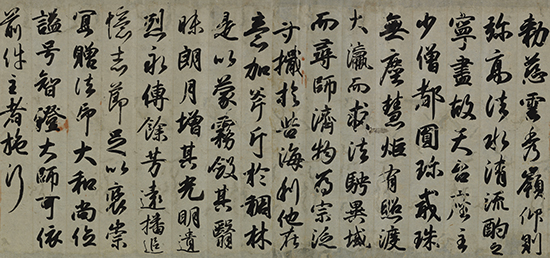 勅慈雲秀嶺仰則
弥高法水清流酌之
寧盡故天台座主
少僧都圓珎戒珠
無塵慧炬有照渡
大瀛而求法騁異域
而尋師濟物為宗泛
於苦海利他在
意加斧斤於稠林
是以蒙霧斂其翳
昧朗月增其光明遺
烈永傳餘芳遠播追
憶志節足以褒崇
宜贈法印大和尚位
謚号智證大師可依
前件主者施行